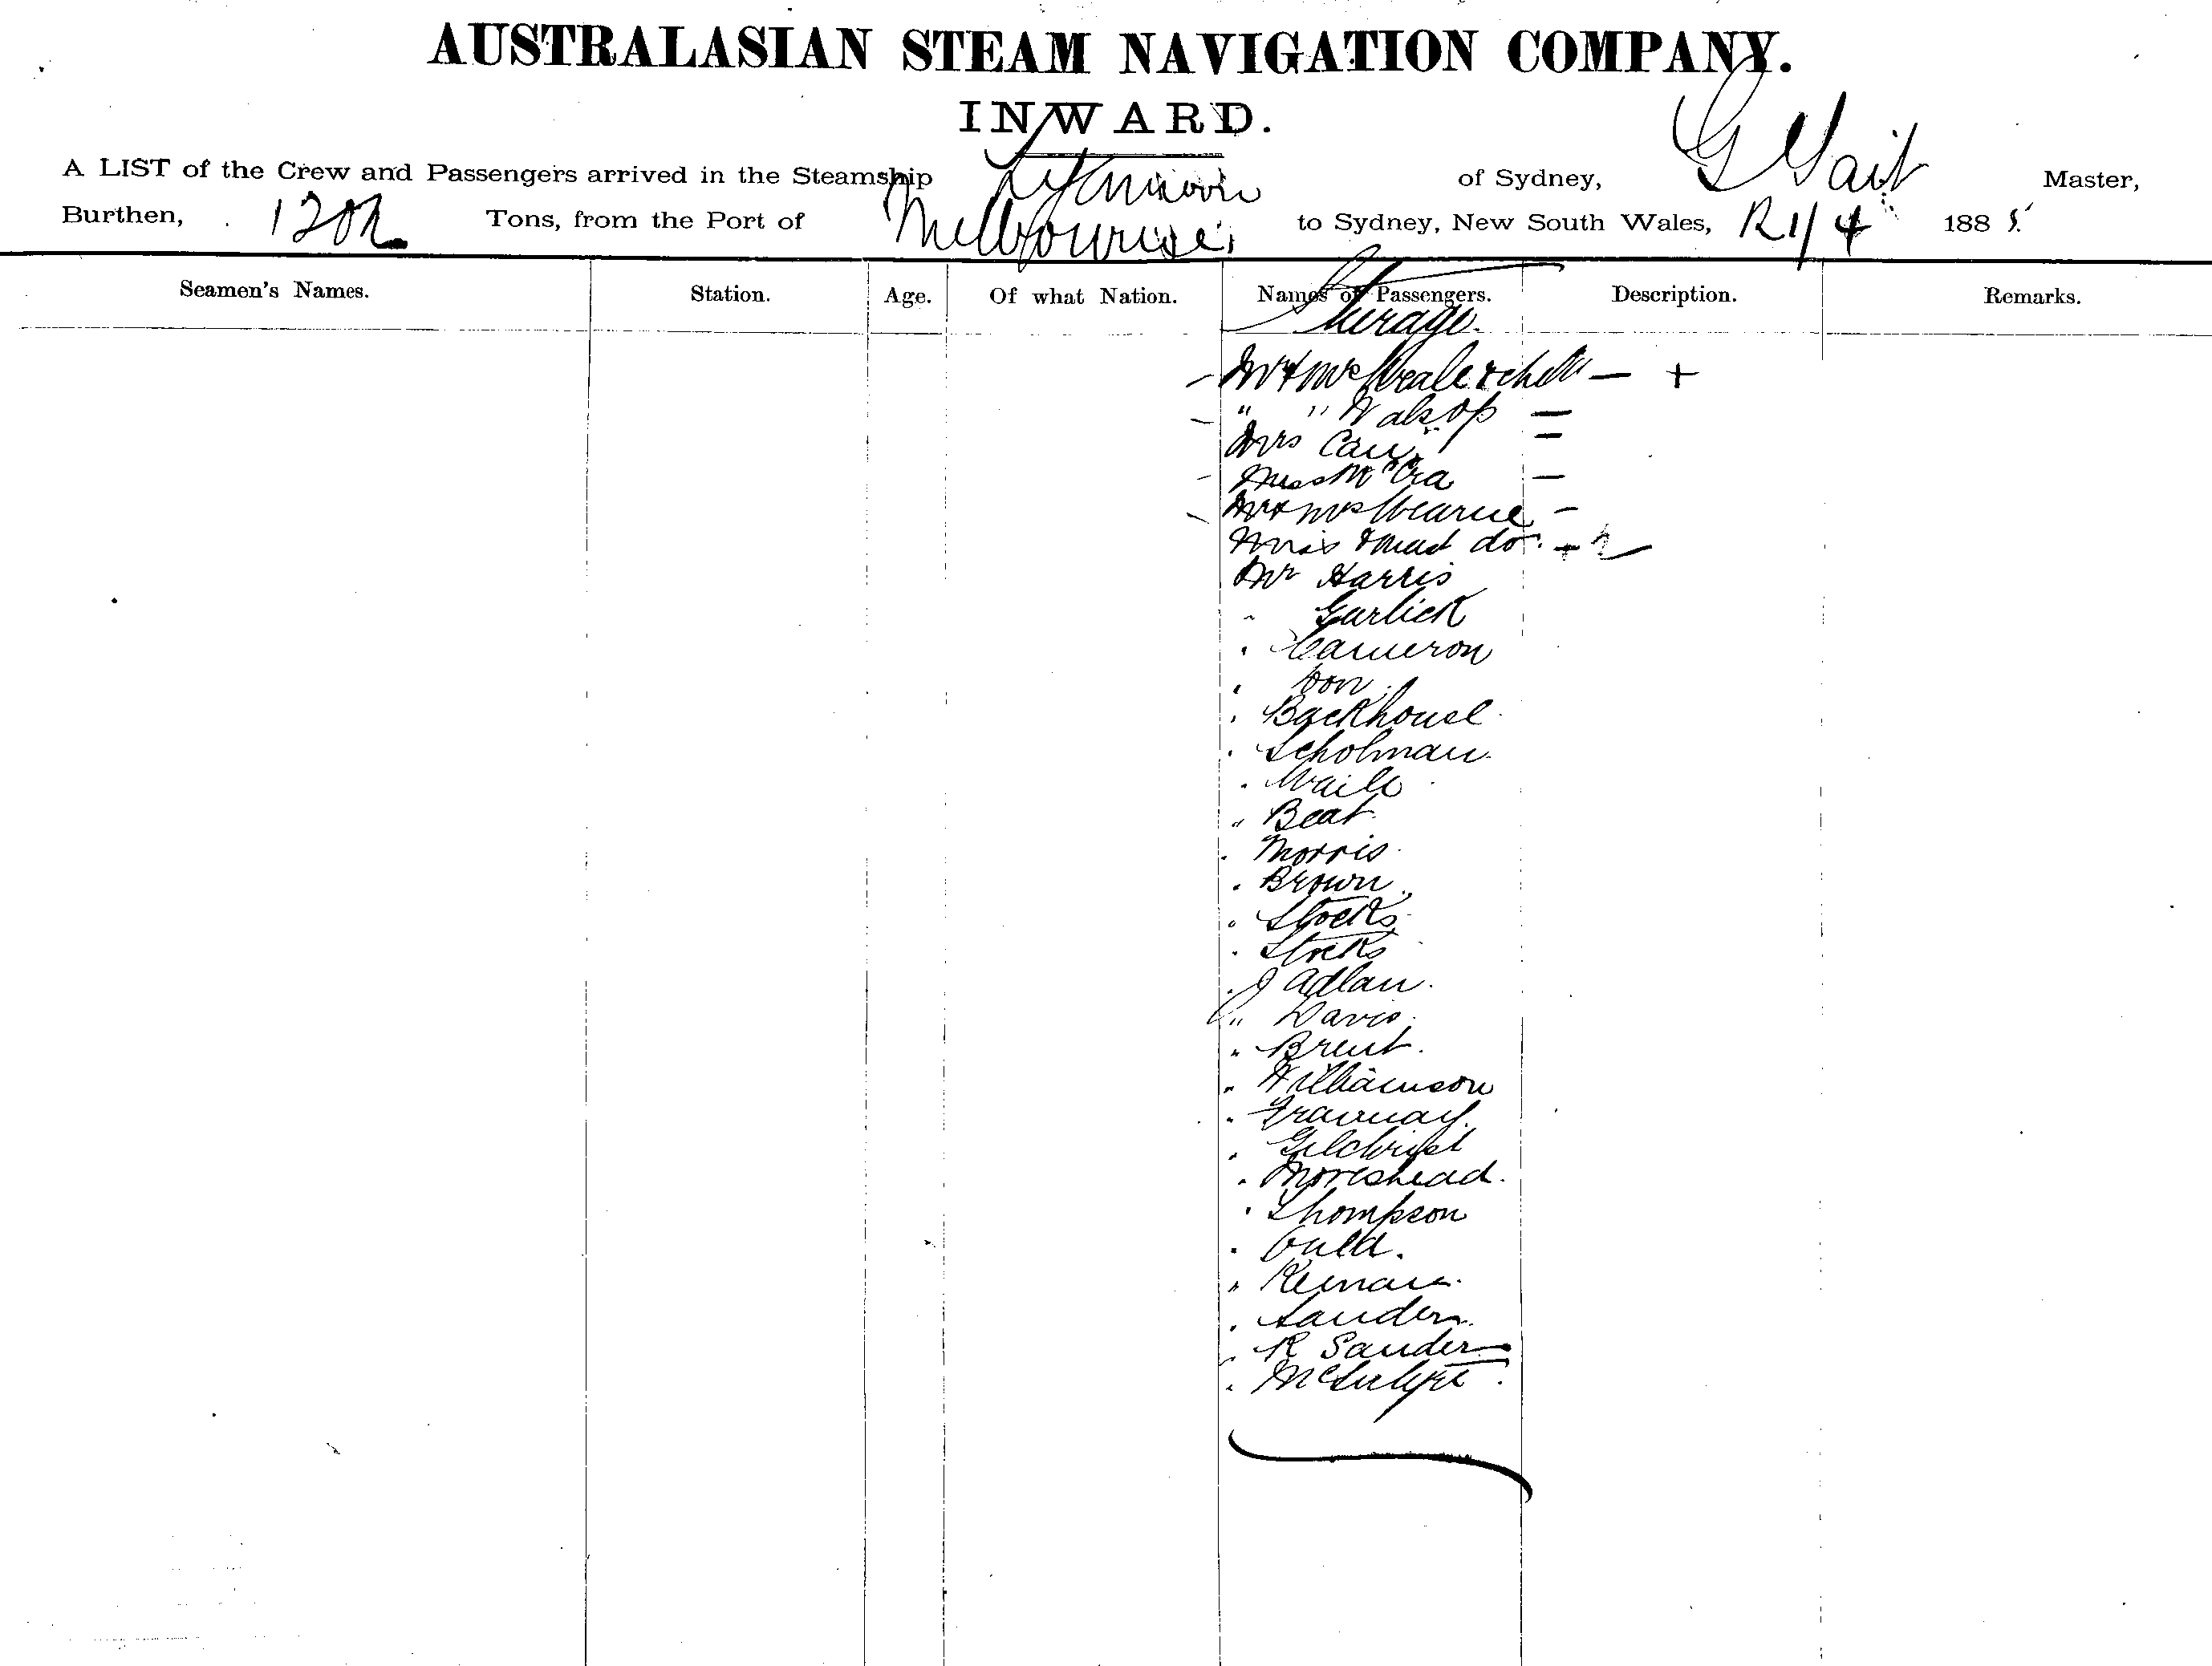 AUSTRALASIAN STEAM NAVIGATION COMPANY.
INWARD.
A LIST of the Crew and Passengers arrived in the Steamship of Sydney, G Gait Master,
Burthen, 1202 Tons, from the Port of Melbourne to Sydney, New South Wales, 21/4 1885.
Seamen's Names. Station. Age. Of what Nation. Names of Passengers. Description. Remarks.
Steerage.
Mr & Mrs Weale & child — +
" " Walsop —
Mrs Carr —
Miss McCra —
Mr & Mrs Wearne —
Miss & Mast do. + 2
Mr Harris
" Garlick
" Cameron
" Don
" Backhouse
" Scholman
"
" Beat
" Morris
" Brown
" Stocks
" Stocks
" J Adlan
" Davis
" Brent
" Williamson
"
" Gilchrist
" Moreshead
" Thompson
" Ould.
"
" Sander
" R Sander
" McIntyre